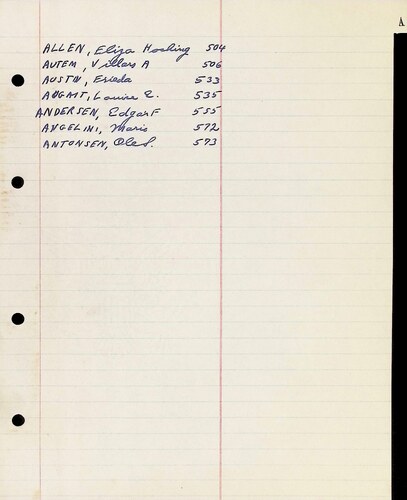 A
ALLEN, Eliza Hosking 504
AUTEM, Villars A 506
AUSTIN, Frieda 533
AUGAIT, Louise E. 535
ANDERSEN, Edgar F 555
ANGELINI, Maris 572
ANTONSEN, Ole S. 573